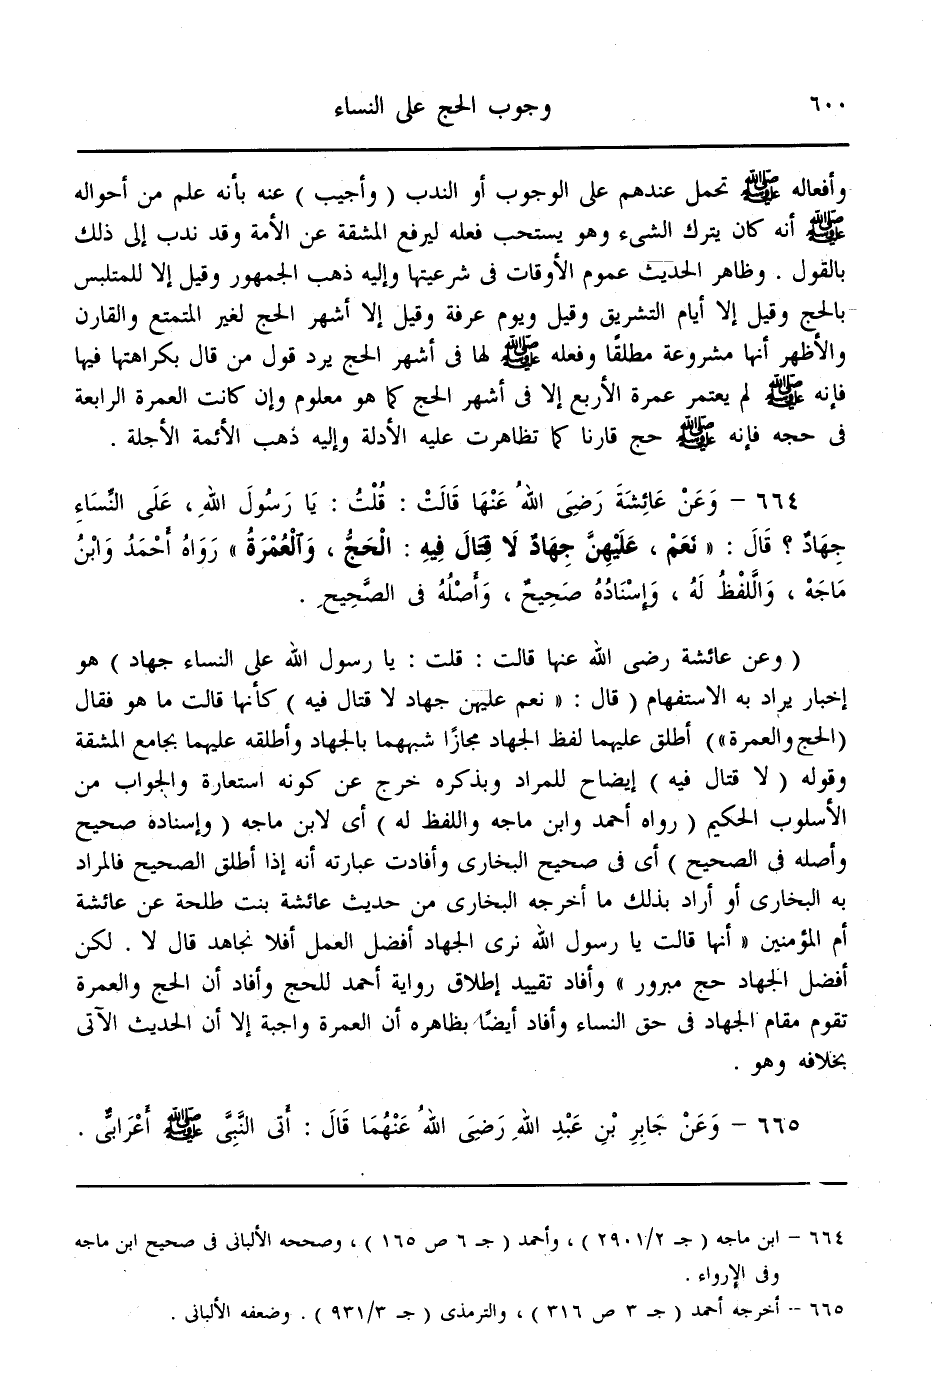 ٦٠٠ وجوب الحج على النساء
وأفعاله ﷺ تحمل عندهم على الوجوب أو الندب ( وأجيب ) عنه بأنه علم من أحواله
ﷺ أنه كان يترك الشىء وهو يستحب فعله ليرفع المشقة عن الأمة وقد ندب إلى ذلك
بالقول . وظاهر الحديث عموم الأوقات فى شرعيتها وإليه ذهب الجمهور وقيل إلا للمتلبس
بالحج وقيل إلا أيام التشريق وقيل ويوم عرفة وقيل إلا أشهر الحج لغير المتمتع والقارن
والأظهر أنها مشروعة مطلقًا وفعله ﷺ لها فى أشهر الحج يرد قول من قال بكراهتها فيها
فإنه ﷺ لم يعتمر عمرة الأربع إلا فى أشهر الحج كما هو معلوم وإن كانت العمرة الرابعة
فى حجه فإنه ﷺ حج قارنا كما تظاهرت عليه الأدلة وإليه ذهب الأئمة الأجلة .
٦٦٤ – وَعَنْ عَائِشَةَ رَضِىَ اللهُ عَنْهَا قَالَتْ : قُلْتُ : يَا رَسُولَ اللهِ ، عَلَى النِّسَاءِ
جِهَادٌ ؟ قَالَ : « نَعَمْ ، عَلَيْهِنَّ جِهَادٌ لَا قِتَالَ فِيهِ : الْحَجُّ ، وَالْعُمْرَةُ » رَوَاهُ أَحْمَدُ وَابْنُ
مَاجَهْ ، وَالَّلفْظُ لَهُ ، وَإِسْنَادُهُ صَحِيحٌ ، وَأَصْلُهُ فى الصَّحِيحِ .
( وعن عائشة رضى الله عنها قالت : قلت : يا رسول الله على النساء جهاد ) هو
إخبار يراد به الاستفهام ( قال : « نعم عليهن جهاد لا قتال فيه ) كأنها قالت ما هو فقال
(الحج والعمرة») أطلق عليهما لفظ الجهاد مجازًا شبههما بالجهاد وأطلقه عليهما بجامع المشقة
وقوله ( لا قتال فيه ) إيضاح للمراد وبذكره خرج عن كونه استعارة والجواب من
الأسلوب الحكيم ( رواه أحمد وابن ماجه واللفظ له ) أى لابن ماجه ( وإسناده صحيح
وأصله فى الصحيح ) أى فى صحيح البخارى وأفادت عبارته أنه إذا أطلق الصحيح فالمراد
به البخارى أو أراد بذلك ما أخرجه البخارى من حديث عائشة بنت طلحة عن عائشة
أم المؤمنين « أنها قالت يا رسول الله نرى الجهاد أفضل العمل أفلا نجاهد قال لا . لكن
أفضل الجهاد حج مبرور » وأفاد تقييد إطلاق رواية أحمد للحج وأفاد أن الحج والعمرة
تقوم مقام الجهاد فى حق النساء وأفاد أيضًا بظاهره أن العمرة واجبة إلا أن الحديث الآتى
بخلافه وهو .
٦٦٥ – وَعَنْ جَابِرِ بْنِ عَبْدِ اللهِ رَضِىَ اللهُ عَنْهُمَا قَالَ : أَتى النَّبِىَّ ﷺ أَعْرَابىٌّ .
٦٦٤ – ابن ماجه ( جـ ٢٩٠١/٢ ) ، وأحمد ( جـ ٦ ص ١٦٥ ) ، وصححه الألبانى فى صحيح ابن ماجه
وفى الإرواء .
٦٦٥ – أخرجه أحمد ( جـ ٣ ص ٣١٦ ) ، والترمذى ( جـ ٩٣١/٣ ) . وضعفه الألبانى .